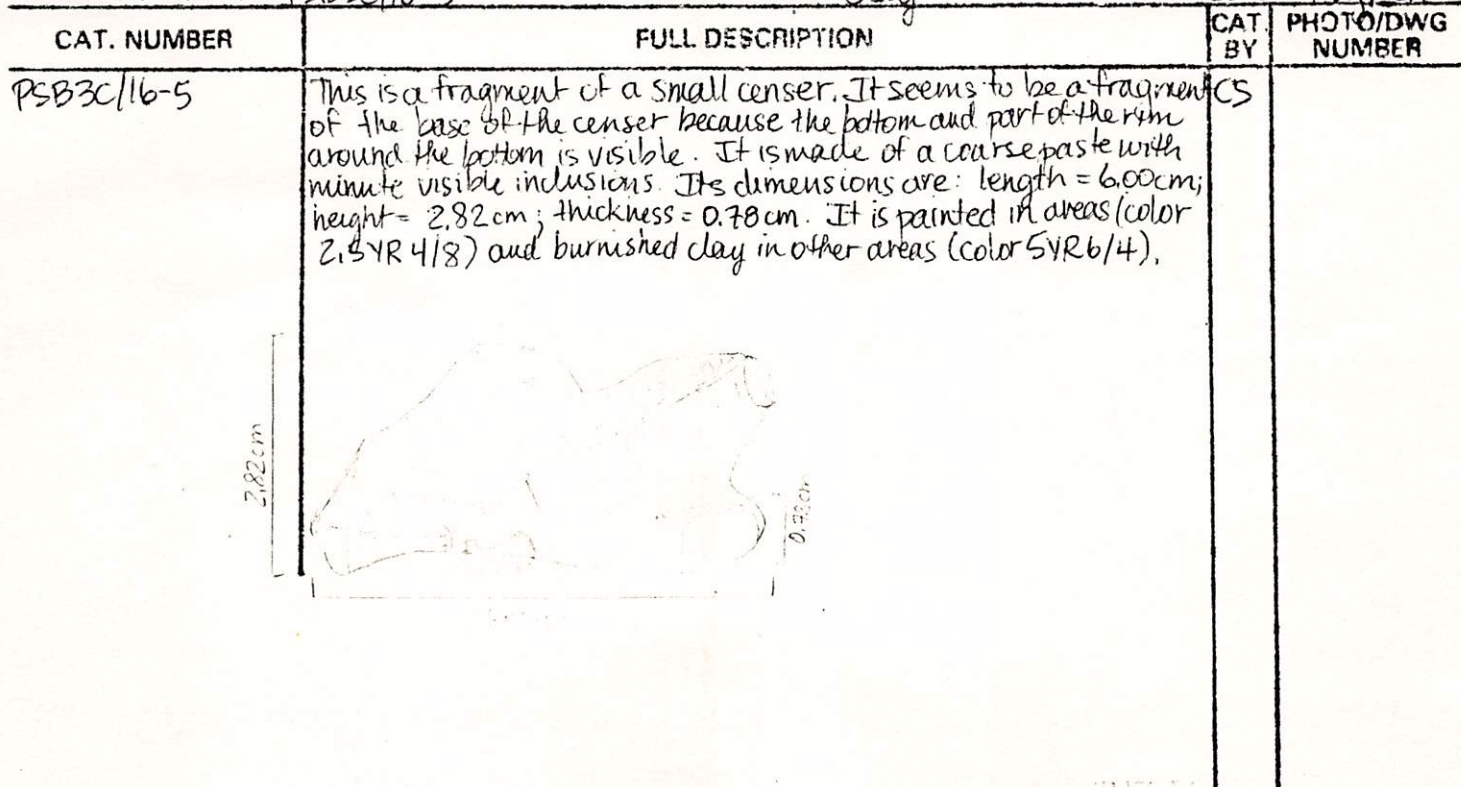 CAT. NUMBER
FULL DESCRIPTION
CAT. BY
PHOTO/DWG NUMBER
PSB3C/16-5
This is a fragment of a small censer. It seems to be a fragment
of the base of the censer because the bottom and part of the rim
around the bottom is visible. It is made of a coarse paste with
minute visible inclusions. Its dimensions are: length = 6.00cm;
height = 2.82cm; thickness = 0.78cm. It is painted in areas (color
2.5YR 4/8) and burnished clay in other areas (color 5YR6/4).
CS
2.82cm
0.78cm